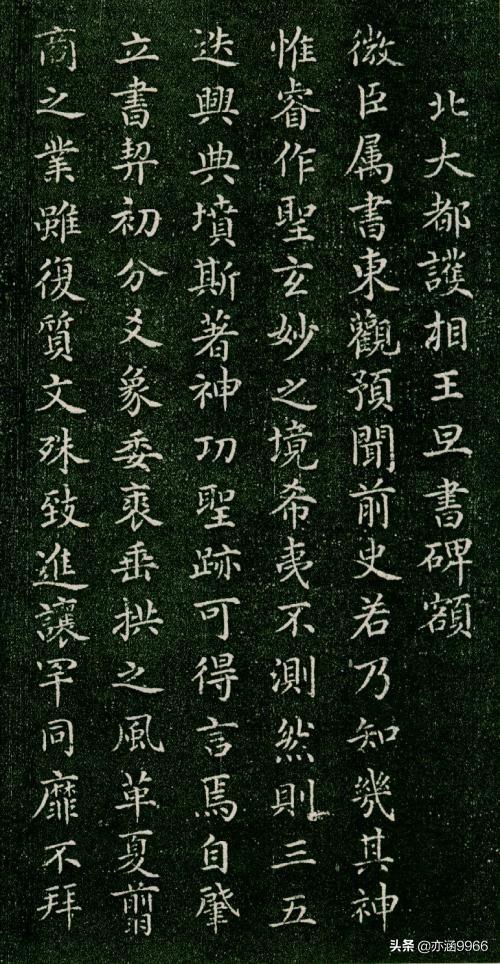 北大都護相王旦書碑額
微臣属書東觀預聞前史若乃知幾其神
惟睿作聖玄妙之境希夷不測然則三五
迭興典墳斯著神功聖跡可得言焉自肇
立書契初分爻象委裘垂拱之風革夏翦
商之業雖復質文殊致進讓罕同靡不拜
头条 @亦涵9966